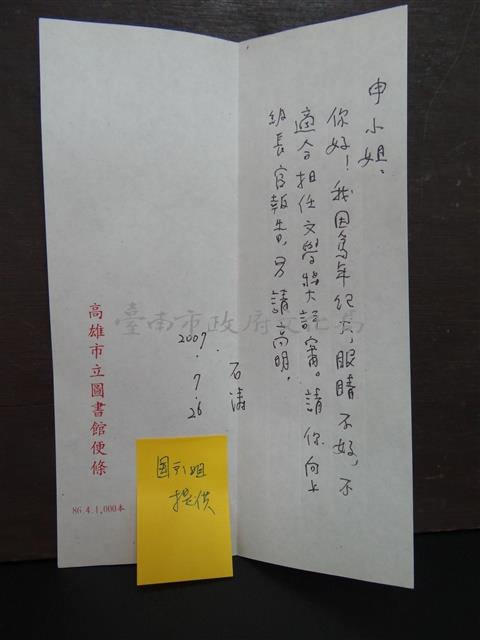 申小姐：
你好！我因為年紀大，眼睛不好，不
適合担任文學奬評審。請你向上
級長官報告，另請高明。
石濤
2007.7.26
高雄市立圖書館便條
86.4.1,000本
姐
提供
臺南市政府文化局